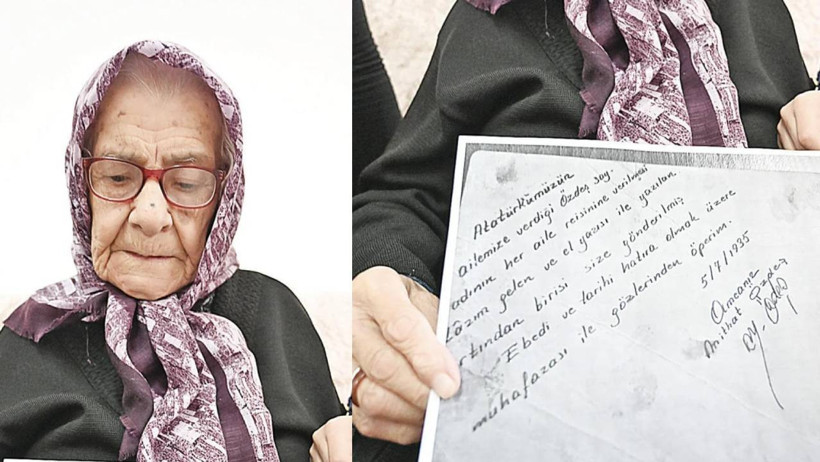 Atatürkümüzün
ailemize verdiği Özdeş soy-
adının her aile reisinine verilmesi
lâzım gelen ve el yazısı ile yazılan
artından birisi size gönderilmiş
Ebedi ve tarihi hatıra olmak üzere
muhafazası ile gözlerinden öperim.
5/7/1935
Amcanız
Mithat Özdeş